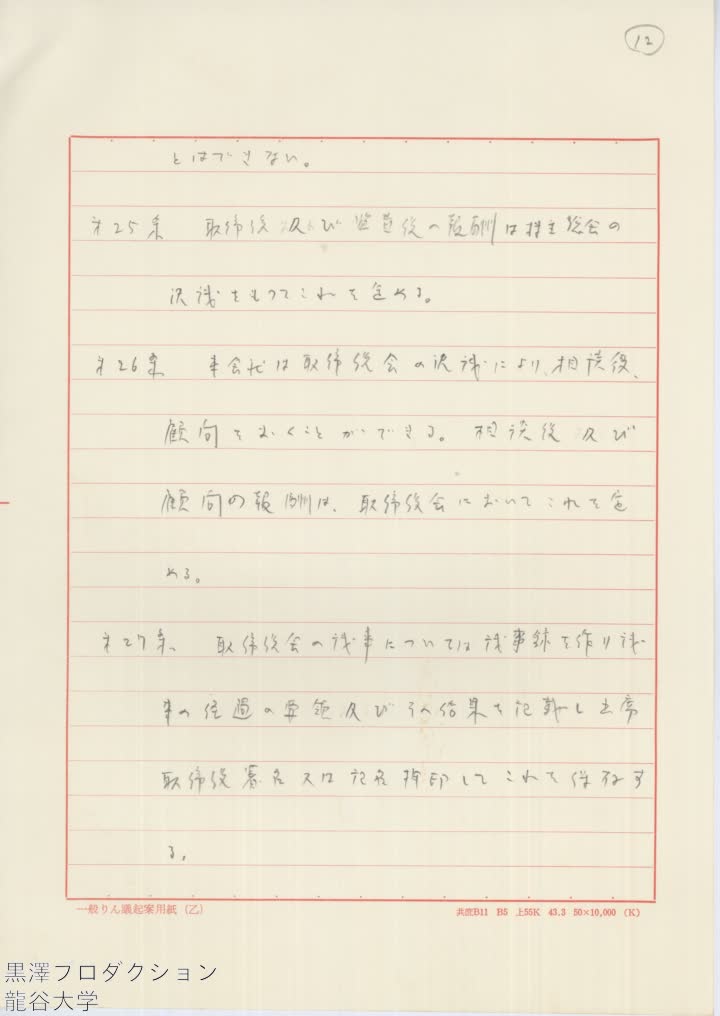 12
とはできない。
才25条 取締役及び監査役の報酬は株主総会の
決議をもってこれを定める。
才26条 本会社は取締役会の決議により、相談役、
顧問をおくことができる。相談役及び
顧問の報酬は、取締役会においてこれを定
める。
才27条、 取締役会の議事については議事録を作り議
事の経過の要領及びその結果を記載し出席
取締役署名又は記名捺印してこれを保存す
る。
一般りん議起案用紙(乙)
共庶B11 B5 上55K 43.3 50×10,000 (K)
黒澤プロダクション
龍谷大学